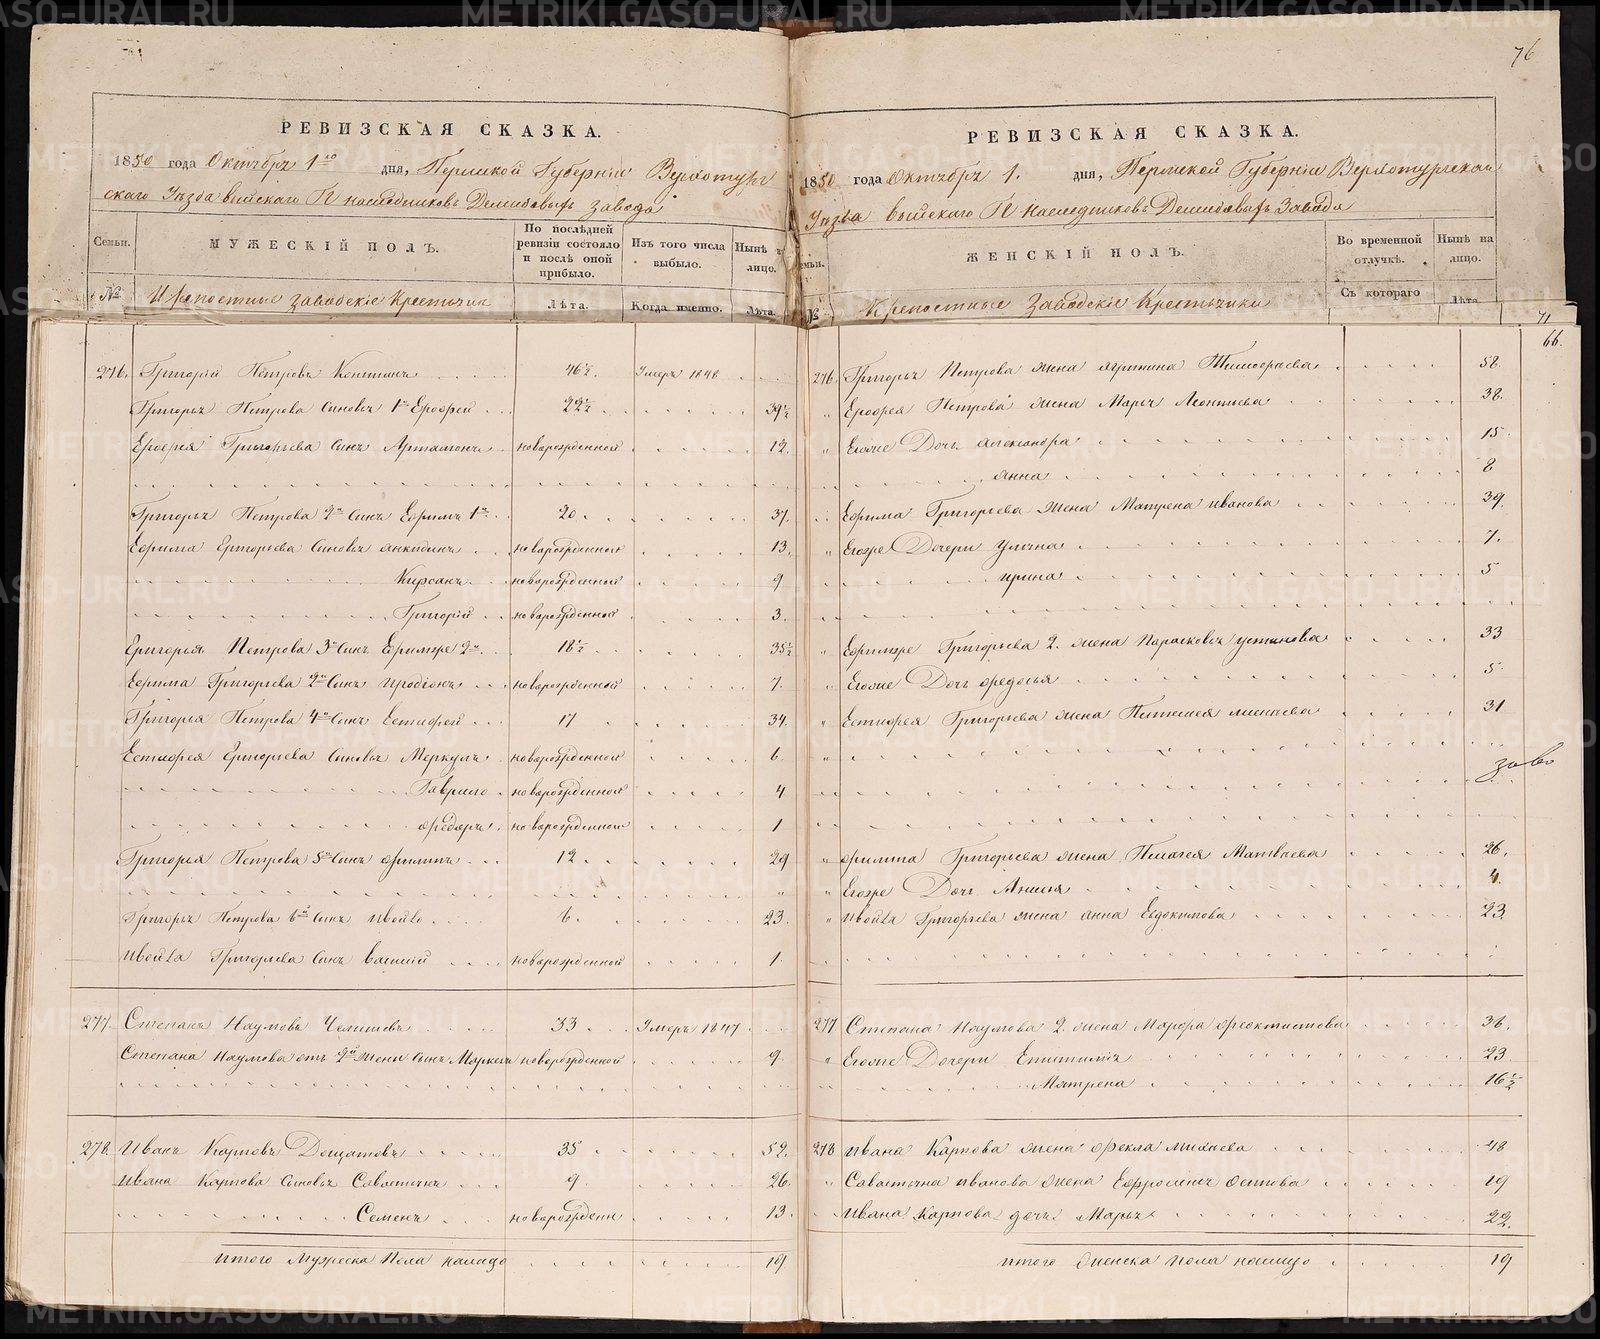 76
РЕВИЗСКАЯ СКАЗКА.
1850 года Октября 1го дня, Пермской Губернии Верхотур
скаго Уезда Выйскаго Гг наследниковъ Демидовыхъ завода
Семьи.
МУЖЕСКІЙ ПОЛЪ.
По последней ревизіи состояло и после оной прибыло.
Изъ того числа выбыло.
Ныне въ лицо.
№
Крепостные заводскіе Крестьяне
Лѣта.
Когда именно.
Лѣта.
276. Григорій Петровъ 46½. Умеръ 1848
Григорья Петрова Сыновья 1й Ерофей 22½ 39½
Ерофея Григорьева Сынъ Артамонъ новорожденной 12.
Григорья Петрова 2й Сынъ Ефимъ 1й 20. 37.
Ефима Григорьева Сыновья новорожденной 13.
Кирсанъ новорожденной 9
Григорій новорожденной 3.
Григорья Петрова 3й Сынъ Ефимъ 2й 18½ 35½
Ефима Григорьева 2й Сынъ Иродіонъ новорожденной 7.
Григорья Петрова 4й Сынъ Естифей 17 34.
Естифея Григорьева Сыновья Меркулъ новорожденной 6.
Гаврило новорожденной 4
Федоръ новорожденной 1
Григорья Петрова 5й Сынъ Филипъ 12 29
Григорья Петрова 6й Сынъ Ивойло 6. 23.
Григорьева Сынъ Василій новорожденной 1.
277. Степанъ Наумовъ 33 Умеръ 1847
Степана Наумова отъ 2й жены Сынъ Маркелъ новорожденной 9
278. Иванъ Карповъ Дощатовъ 35 52.
Ивана Карпова Сыновья Савастьянъ 9 26.
Семенъ новорожденн 13.
итого Мужеска Пола налицо 19
РЕВИЗСКАЯ СКАЗКА.
1850 года Октября 1. дня, Пермской Губерніи Верхотурскаго
Уезда Выйскаго Гг Наследниковъ Демидовыхъ Завода
ЖЕНСКІЙ ПОЛЪ.
Во временной отлучкѣ.
Нынѣ на лицо.
№
Крепостные Заводскіе Крестьянки
Съ котораго
Лѣта.
71
66.
276. Григорья Петрова жена Тимофеева 58.
Ерофея Петрова жена Марья Леонтьева 38.
Егоже Дочь Александра 15
Анна 8
Ефима Григорьева жена Матрена Иванова 39.
Егоже Дочери Ульяна 7.
Ирина 5
Григорьева 2. жена Парасковья Устинова 33
Егоже Дочь Федосья 5.
Естифея Григорьева жена 31
заво
Филипа Григорьева жена Пелагея Матвеева 26.
Егоже Дочь 4.
Григорьева жена Анна Евдокимова 23.
277 Степана Наумова 2. жена Феоктистова 36.
Егоже Дочери 23
Матрена 16½
278 Ивана Карпова жена Фекла 48
Савастьяна Иванова жена Ефросинья Осипова 19
Ивана Карпова дочь Марья 22.
итого женска пола налицо 19
METRIKI.GASO-URAL.RU